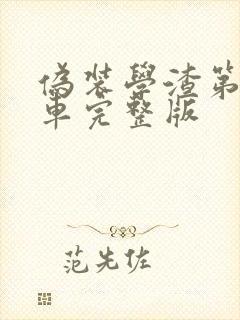 偽裝學渣第
車完整版
范先佐